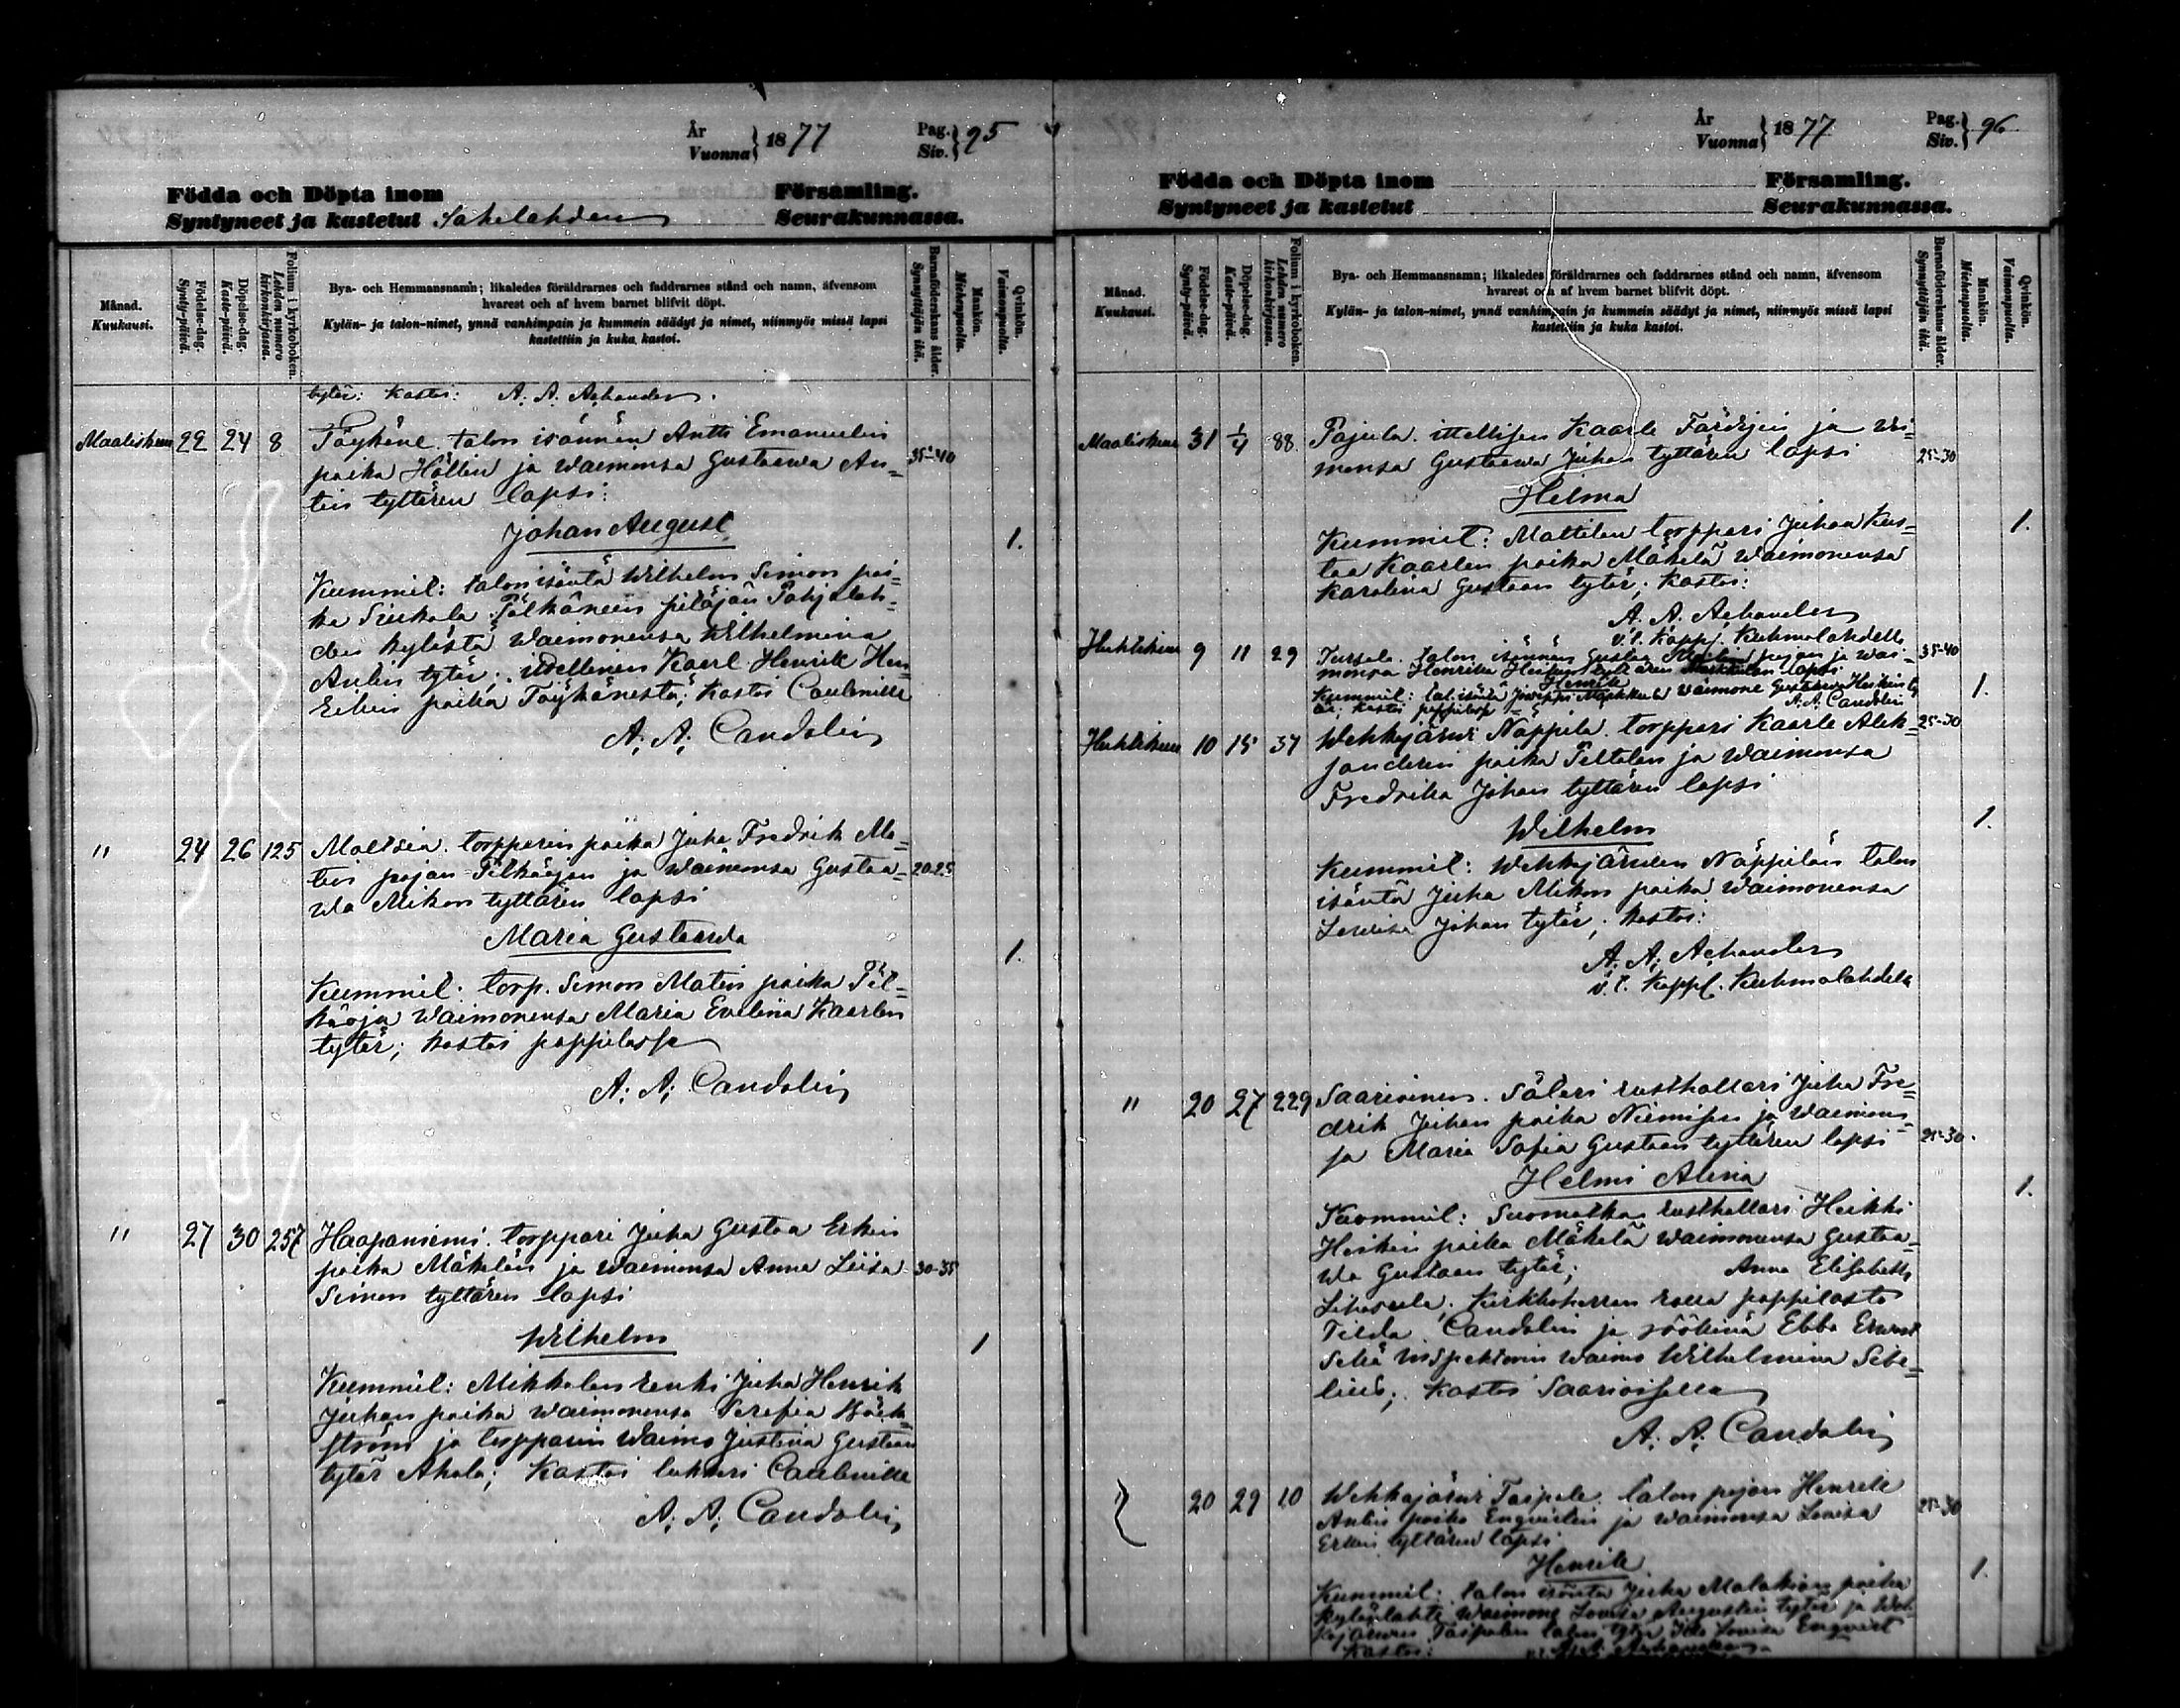 År
Vuonna } 1877
Pag.
Siv. } 95
Födda och Döpta inom Församling.
Syntyneet ja kastetut Sahelahden Seurakunnassa.
Månad.
Kuukausi.
Födelse-dag.
Synty-päivä.
Döpelse-dag.
Kaste-päivä.
Folium i kyrkoboken.
Lehden numero kirkonkirjassa.
Bya- och Hemmansnamn; likaledes föräldrarnes och faddrarnes stånd och namn, äfvensom
hvarest och af hvem barnet blifvit döpt.
Kylän- ja talon-nimet, ynnä vanhimpain ja kummein säädyt ja nimet, niinmyös missä lapsi
kastettiin ja kuka kastoi.
Barnaföderskans ålder.
Synnyttäjän ikä.
Mankön.
Miehenpuolta.
Qvinkön.
Vaimonpuolta.
tytär: Kastoi: A. A. Achander.
Maaliskuu 22 24 8 Töykäne. talon isännän Antti Emanuelin
poika Höllin ja waimonsa Gustaawa An= 35-40
tin tyttären lapsi:
Johan August
1.
Kummit: talon isäntä Wilhelm Simon poi=
ka Sinkala Pälkäneen pitäjän Pohjalah=
den kylästä waimonensa Wilhelmina
Antin tytär; itsellinen Kaarl Henrik Hen
Erkin poika Töykänestä; Kastoi
A. A. Candolin
" 24 26 125 torpparin poika Juha Fredrik Ma=
tin pojan ja waimonsa Gustaa= 20-25
wa Mikon tyttären lapsi
Maria Gustaawa
1.
Kummit: torp. Simon Matin poika Pil=
käoja waimonensa Maria Evelina Kaarlen
tytär; kastoi pappilassa
A. A. Candolin
" 27 30 257 Haapaniemi. torppari Juha Gustaa Erkin
poika Mäkelän ja waimonsa Anna Liisa 30-35
Simon tyttären lapsi
Wilhelm
1
Kummit: Mikkolan renki Juha Henrik
Juhan poika waimonensa Serafia Bäck=
ström ja torpparin waimo Justina Gustaan
tytär Ahola; Kastoi lukkari
A. A. Candolin
År
Vuonna } 1877
Pag.
Siv. } 96
Födda och Döpta inom Församling.
Syntyneet ja kastetut Seurakunnassa.
Månad.
Kuukausi.
Födelse-dag.
Synty-päivä.
Döpelse-dag.
Kaste-päivä.
Folium i kyrkoboken.
Lehden numero kirkonkirjassa.
Bya- och Hemmansnamn; likaledes föräldrarnes och faddrarnes stånd och namn, äfvensom
hvarest och af hvem barnet blifvit döpt.
Kylän- ja talon-nimet, ynnä vanhimpain ja kummein säädyt ja nimet, niinmyös missä lapsi
kastettiin ja kuka kastoi.
Barnaföderskans ålder.
Synnyttäjän ikä.
Mankön.
Miehenpuolta.
Qvinkön.
Vaimonpuolta.
Maaliskuu 31 1/4 88 Pajula. ittellisen Kaarle Färdigin ja wai=
monsa Gustaawa Juhan tyttären lapsi 25-30
Hilma
1.
Kummit: Mattilan torppari Juhan Kus=
taa Kaarlen poika Mäkelä waimonensa
Karolina Gustaan tytär; Kastoi:
A. A. Achander
v. t. Kappl. Kuhmalahdella
Huhtikuu 9 11 29 talon isännän Gustaa pojan ja wai= 35-40
monsa Henrika tyttären lapsi
Henrik
1.
Kummit: tal. isäntä waimone Gustaawa Heikin ty
tär; Kastoi pappilass A. A. Candolin
Huhtikuu 10 15 37 Wehkajärwi Näppilä. torppari Kaarle Alek= 25-30
sanderin poika Peltolan ja waimonsa
Fredrika Johan tyttären lapsi
Wilhelm
1.
Kummit: Wehkajärwen Näppilän talon
isäntä Juha Mikon poika waimonensa
Lowisa Johan tytär; kastoi:
A. A. Achander
v. t. Kappl. Kuhmalahdella
" 20 27 229 Saarioinen. Säteri rusthollari Juha Fre=
drik Juhan poika Niemisen ja waimon=
sa Maria Sofia Gustaan tyttären lapsi 25-30.
Helmi Alina
1.
Kummit: rusthollari Heikki
Heikin poika Mäkelä waimonensa Gustaa=
wa Gustaan tytär; Anna Elisabeth
Kirkkoherran pappilasta
Tilda Candolin ja Ebba
Sekä Inspektorin waimo Wilhelmina Sibe=
lius; Kastoi Saarioisilla
A. A. Candolin
20 29 10 Wehkajärwi Taipale. talon pojan Henrik
Antin poika Enqvistin ja waimonsa Lowisa 25-30
Erkin tyttären lapsi
Henrik
1.
Kummit: talon isäntä Juha Malakian poika
waimone Lowisa Augustin tytär ja Weh
kajärwen Taipaleen talon tytär Ida Lowisa Enqvist
Kastoi: